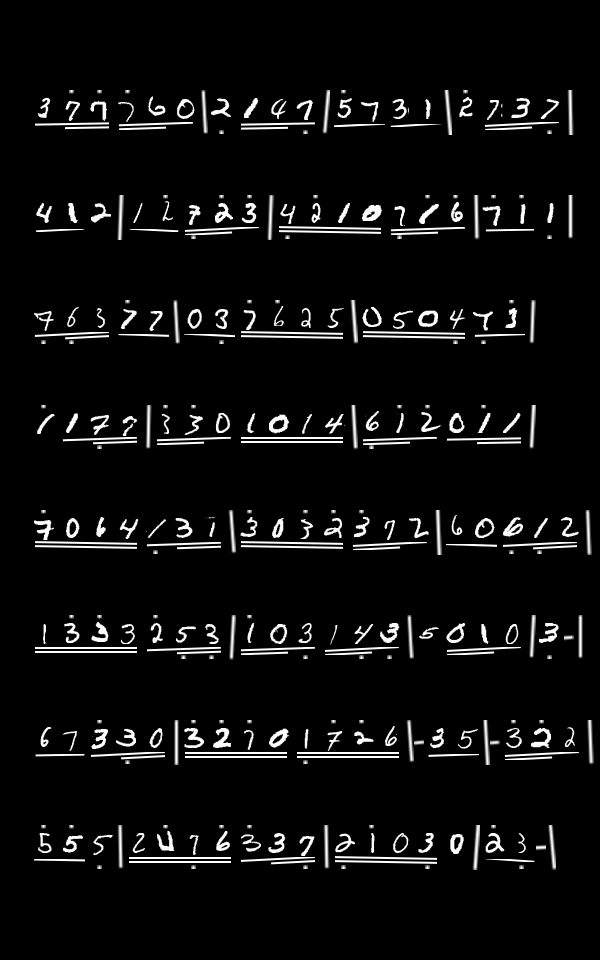 3 7 7 7 6 0 | 2 1 4 7 | 5 7 3 1 | 2 7 3 7 |
4 1 2 | 1 2 7 2 3 | 4 2 1 0 7 1 6 | 7 1 1 |
7 6 3 7 7 | 0 3 7 6 2 5 | 0 5 0 4 7 3 |
1 1 7 7 | 3 3 0 1 0 1 4 | 6 1 2 0 1 1 |
7 0 6 4 1 3 1 | 3 0 3 2 3 7 2 | 6 0 6 1 2 |
1 3 3 3 2 5 3 | 1 0 3 1 4 3 | 5 0 1 0 | 3 - |
6 7 3 3 0 | 3 2 7 0 1 7 2 6 | - 3 5 | - 3 2 2 |
5 5 5 | 2 4 7 6 3 3 7 | 2 1 0 3 0 | 2 3 - |